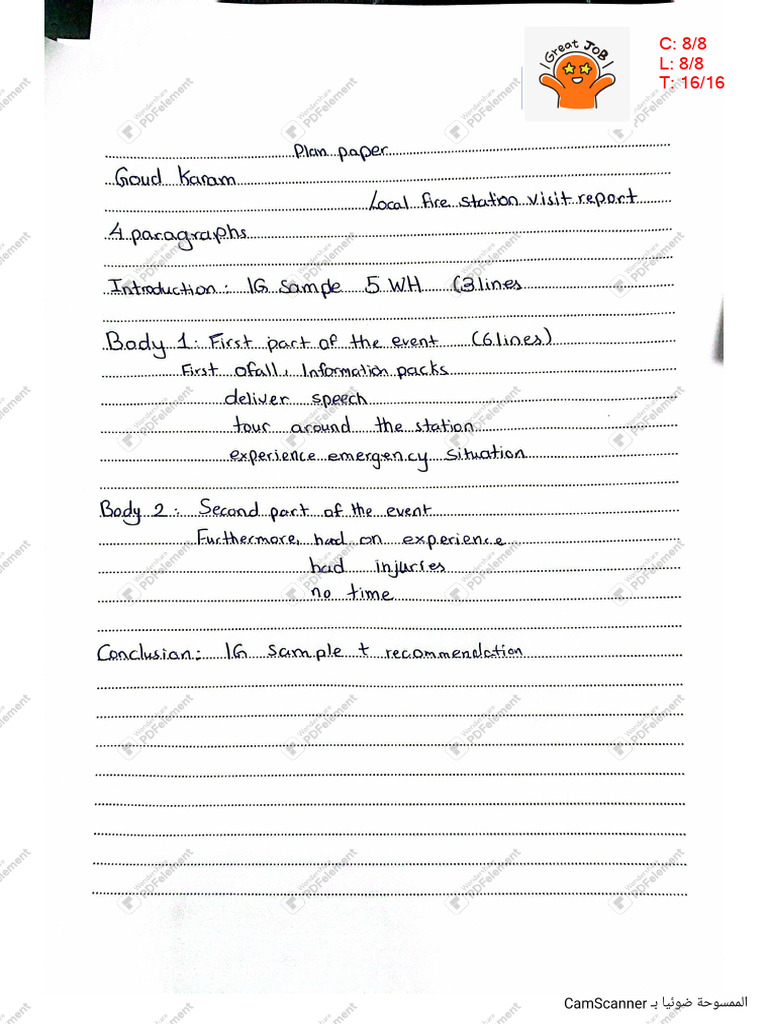 Great JOB
C: 8/8
L: 8/8
T: 16/16
Plan paper
Goud Karam
Local fire station visit report
4 paragraphs
Introduction: IG sample 5 WH (3 lines
Body 1: First part of the event (6 lines)
First of all, Information packs
deliver speech
tour around the station
experience emergency situation
Body 2: Second part of the event
Furthermore, had on experience
had injuries
no time
Conclusion: IG sample + recommendation
Wondershare
PDFelement
الممسوحة ضوئيا بـ CamScanner